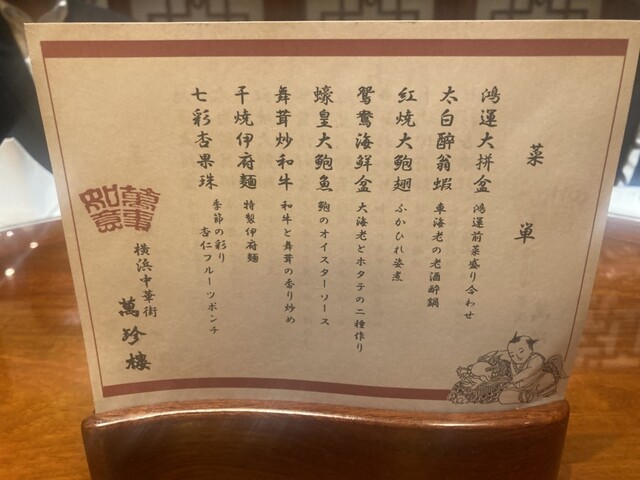 菜単
鴻運大拼盆 鴻運前菜盛り合わせ
太白醉翁蝦 車海老の老酒醉鍋
紅焼大鮑翅 ふかひれ姿煮
鴛鴦海鮮盒 大海老とホタテの二種作り
蠔皇大鮑魚 鮑のオイスターソース
舞茸炒和牛 和牛と舞茸の香り炒め
干焼伊府麵 特製伊府麺
七彩杏果珠 季節の彩り
杏仁フルーツポンチ
萬事
如意
横浜中華街
萬珍樓